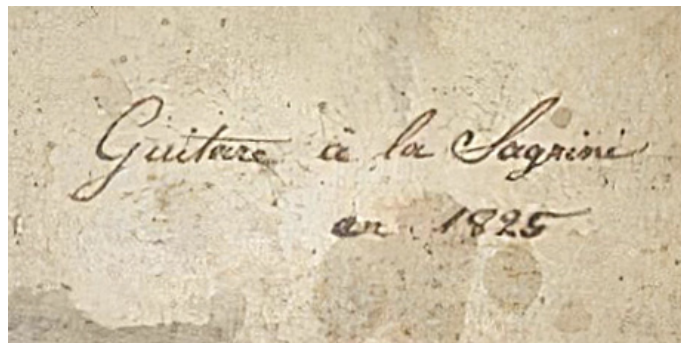 Guitare à la Sagrini
an 1825